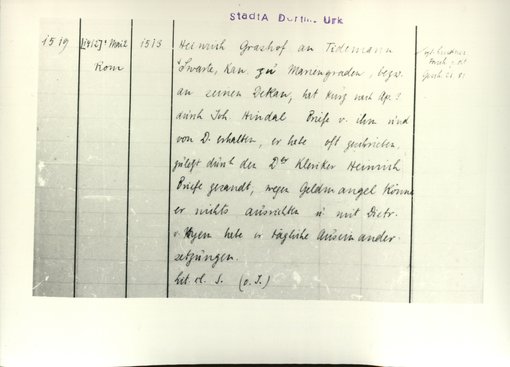 StadtA Dortm. Urk
1519 [1512] Mai 2 1513 Heinrich Grashof an Tidemann
Rom Swarte, Kan. zu Mariengraden, bezw.
an seinen Dekan, hat kurz nach Ap. 3.
durch Joh. Hindal Briefe v. ihm und
von D. erhalten, er habe oft geschrieben,
zuletzt durch den Dter Kleriker Heinrich
Briefe gesandt, wegen Geldmangel könne
er nichts ausrichten u. mit Dietr.
v. habe er tägliche Auseinander-
setzungen.
Lit. cl. S. (o. J.)